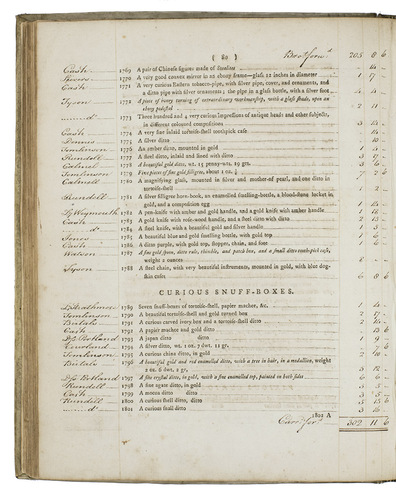 ( 80 ) Brot forwd 205 8 6
Cash 1769 A pair of Chinese figures made of 14
1770 A very good convex mirror in an ebony frame—glass 12 inches in diameter 1 17
Cash 1771 A very curious Eastern tobacco-pipe, with silver pipe, cover, and ornaments, and
a ditto pipe with silver ornaments; the pipe in a glass bottle, with a silver foot 4 4
Tyson 1772 A piece of ivory turning of extraordinary workmanship, with a glass shade, upon an
ebony pedestal 2 11
do 1773 Three hundred and 4 very curious impressions of antique heads and other subjects,
in different coloured compositions 3 14
Cash 1774 A very fine inlaid tortoise-shell toothpick case 14
1775 A silver ditto 10
Tomlinson 1776 An amber ditto, mounted in gold 1
Rundell 1777 A steel ditto, inlaid and lined with ditto 3
1778 A beautiful gold ditto, wt. 15 penny-wts. 19 grs. 3 6
Tomlinson 1779 Five pieces of fine gold filligree, about 2 oz. 7 2 6
1780 A magnifying glass, mounted in silver and mother-of pearl, and one ditto in
tortoise-shell 1 2
Rundell 1781 A silver filligree horn-book, an enamelled smelling-bottle, a blood-stone locket in
gold, and a composition egg 1
Ld Weymouth 1782 A pen-knife with amber and gold handle, and a gold knife with amber handle 1
Cash 1783 A gold knife with rose-wood handle, and a steel ditto with ditto 1
do 1784 A steel knife, with a beautiful gold and silver handle 1
Jones 1785 A beautiful blue and gold smelling bottle, with gold top 1 6
Cash 1786 A ditto purple, with gold top, stopper, chain, and foot 1 6
Watson 1787 A fine gold spoon, ditto rule, thimble, and patch box, and a small ditto tooth-pick case,
weight 2 ounces 8
Tyson 1788 A steel chain, with very beautiful instruments, mounted in gold, with blue dog-
skin case 6 8 6
CURIOUS SNUFF-BOXES.
1789 Seven snuff-boxes of tortoise-shell, papier machee, &c. 1 4
Tomlinson 1790 A beautiful tortoise-shell and gold carved box 2 17
1791 A curious carved ivory box and a tortoise-shell ditto 2
Cash 1792 A papier machee and gold ditto 13 6
Ds Portland 1793 A japan ditto 1 9
1794 A silver ditto, wt. 1 oz. 7 dwt. 12 gr. 7 6
Tomlinson 1795 A curious china ditto, in gold 2 10
1796 A beautiful gold and red enamelled ditto, with a tree in hair, in a medallion, weight
2 oz. 6 dwt. 2 gr. 3 12
Ds Portland 1797 A fine crystal ditto, in gold, with a fine enamelled top, painted in both sides 6
Rundell 1798 A fine agate ditto, in gold 3 5
Cash 1799 A mocoa ditto ditto 3 3
Rundell 1800 A curious shell ditto ditto 5 15 6
do 1801 A curious small ditto 3 16
1802 A
Carrd forwd 302 11 6